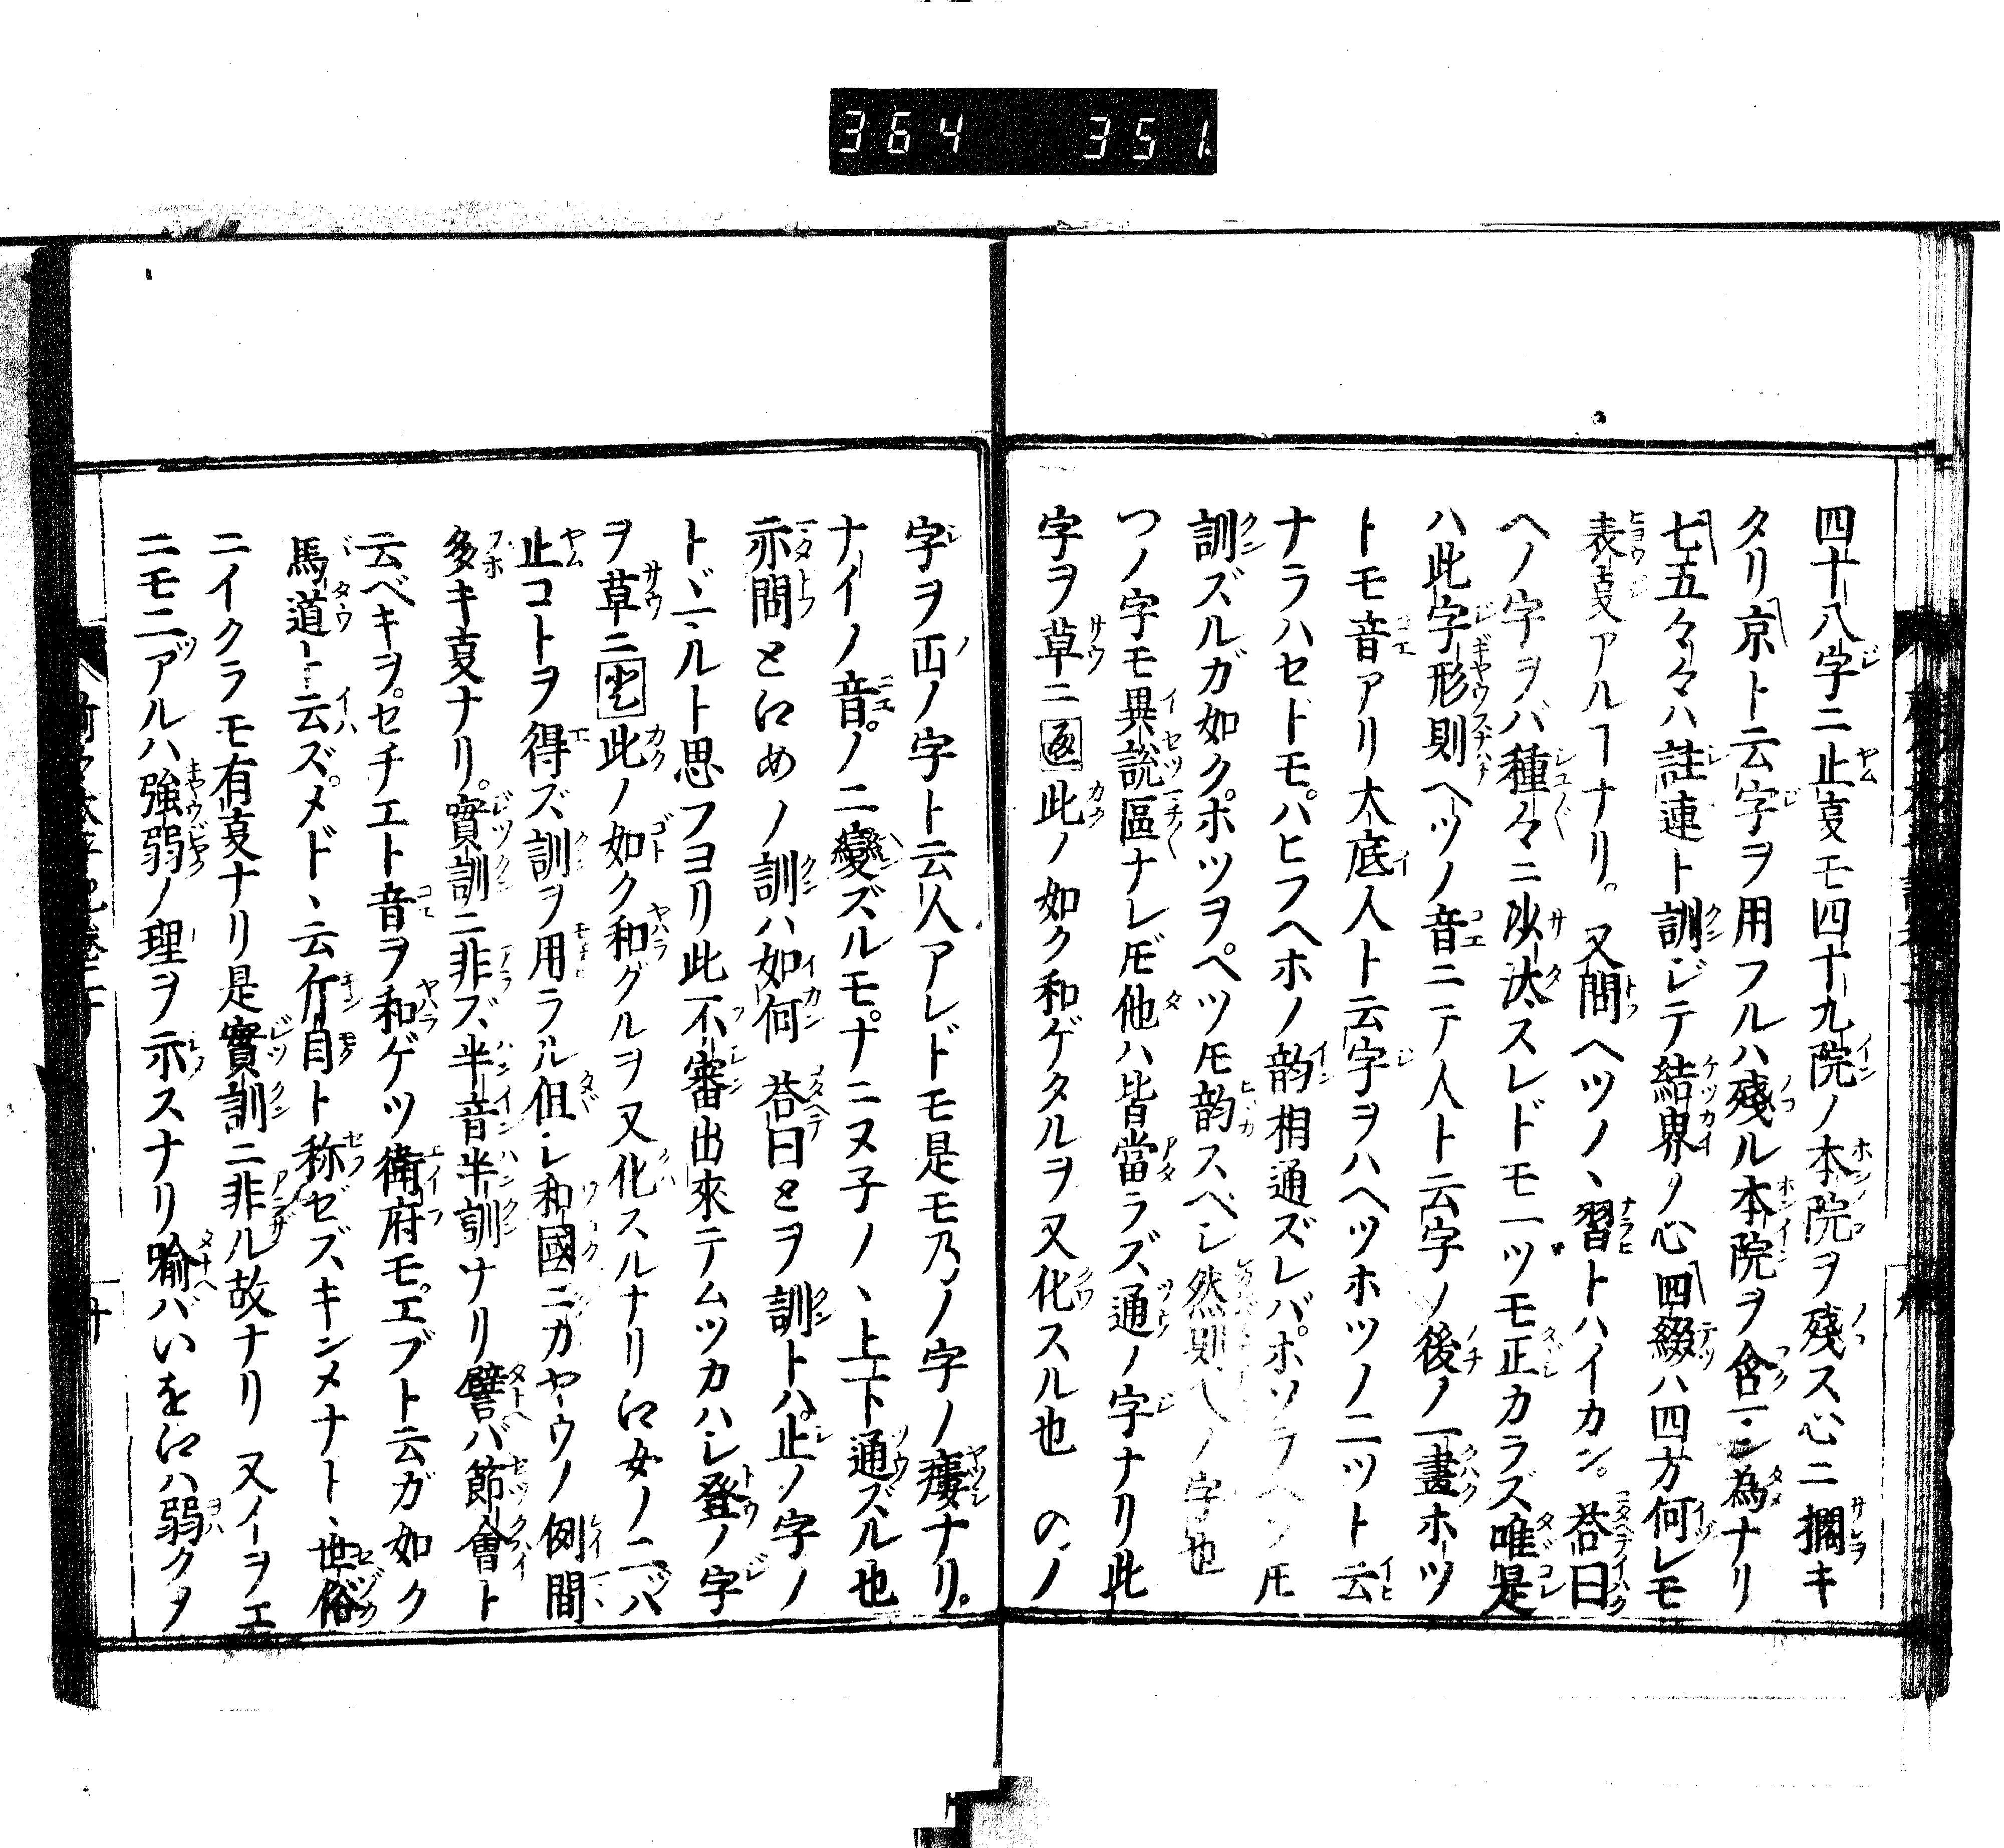 364 351
四十八字ニ止㕝モ四十九院ノ本院ヲ殘ス心ニ擱キ
タリ京ト云字ヲ用フルハ殘ル本院ヲ含ン為ナリ
七五々々ハ註連ト訓ジテ結界ノ心四綴ハ四方何レモ
表㕝アルヿナリ。又問ヘツノヽ習トハイカン。荅曰
ヘノ字ヲバ種々ニ沙汰スレドモ一ツモ正カラズ唯是
ハ此字形則ヘツノ音ニテ人ト云字ノ後ノ一畫ホーツ
トモ音アリ大底人ト云字ヲハヘツホツノ二ツト云
ナラハセドモ。パヒフヘホノ韵相通ズレバ。ホツラヘツ𪜈
訓ズルガ如ク。ホツヲ。ヘツ𪜈韵スベシ然則ヘノ字也
つノ字モ異說區ナレ𪜈他ハ皆當ラズ通ノ字ナリ此
字ヲ草ニ返此ノ如ク和ゲタルヲ又化スル也 のノ
字ヲ𠀕ノ字ト云人アレドモ是モ乃ノ字ノ瘻ナリ。
ナイノ音。ノニ變ズルモ。ナニヌ子ノヽ上下通ズル也
亦問とにめノ訓ハ如何 荅曰とヲ訓トハ止ノ字ノ
トヾマルト思フヨリ此不審出來テムツカハシ登ノ字
ヲ草ニ此ノ如ク和グルヲ又化スルナリに女ノ二バ
止コトヲ得ズ訓ヲ用ラル但シ和國ニカヤウノ例間
多キ㕝ナリ。實訓ニ非ズ半音半訓ナリ譬バ節會ト
云ベキヲ。セチエト音ヲ和ゲツ衛府モ。エブト云ガ如ク
馬道ト云ズ。メドヽ云斤目ト称ゼズキンメナトヽ世俗
ニイクラモ有㕝ナリ是實訓ニ非ル故ナリ 又イーヲエ
ニモ二アルハ強弱ノ理ヲ示スナリ喩バいをにハ弱クヲ